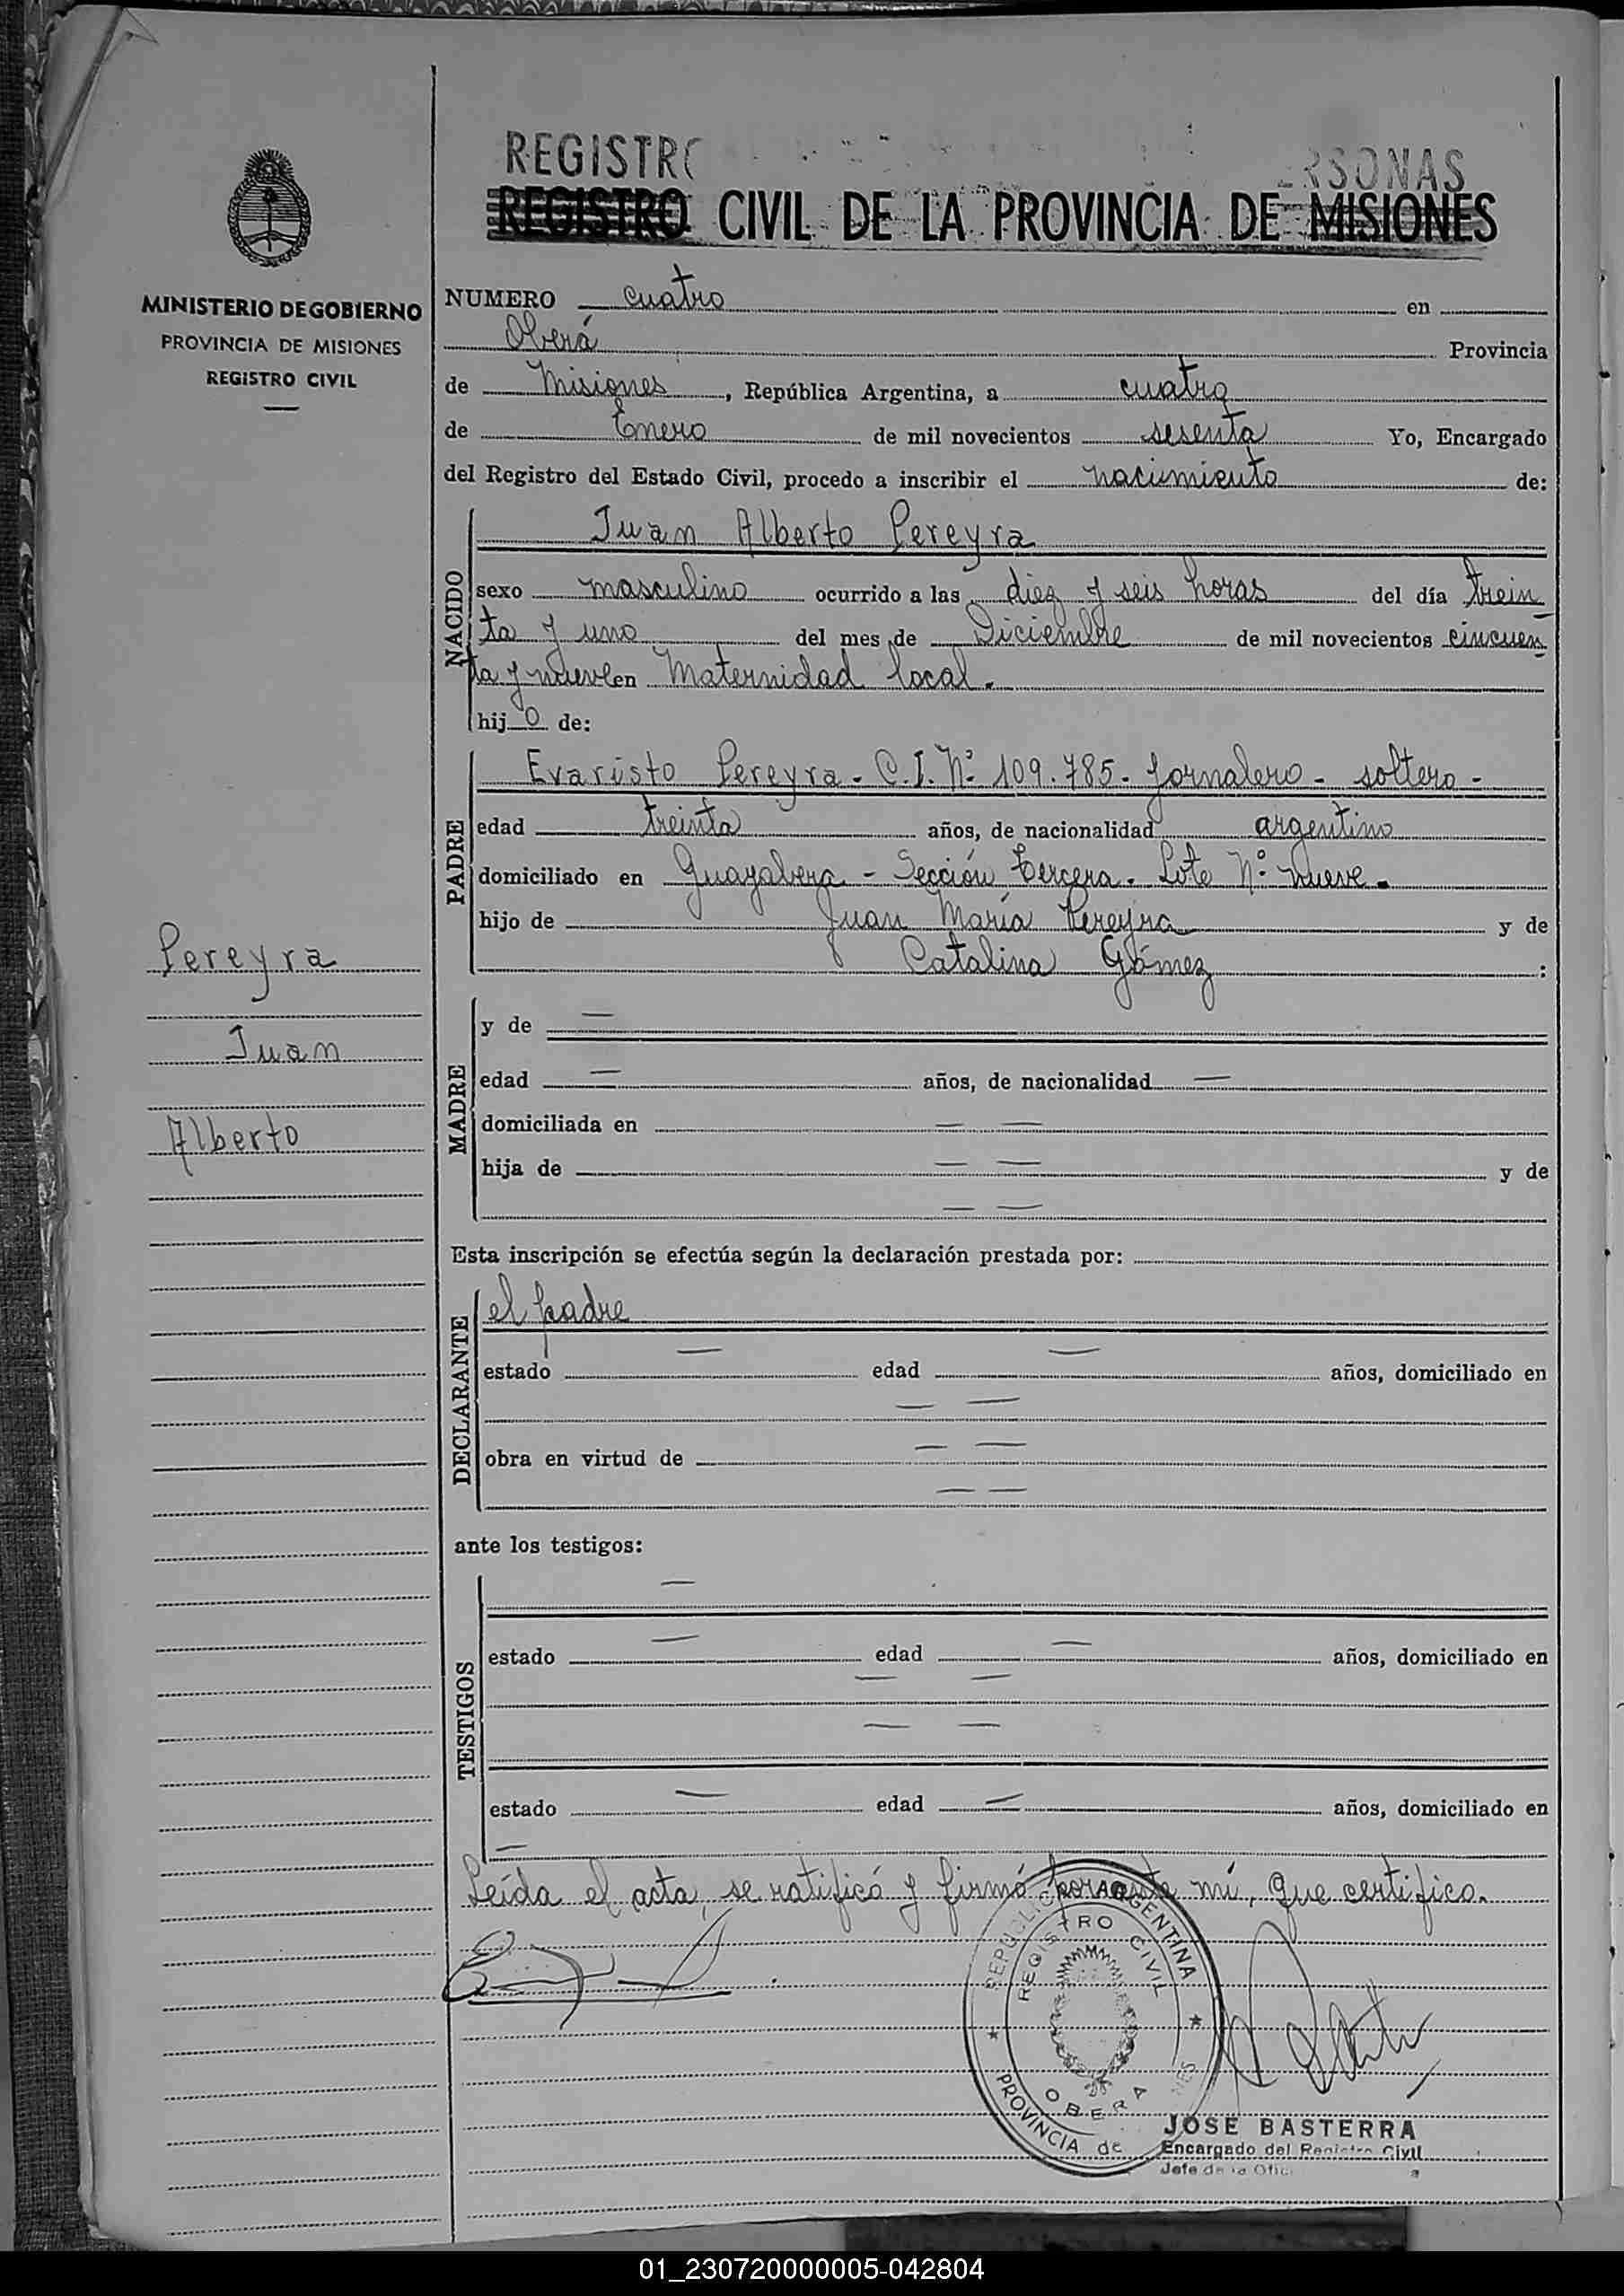 REGISTRO
PERSONAS
REGISTRO CIVIL DE LA PROVINCIA DE MISIONES
MINISTERIO DE GOBIERNO
PROVINCIA DE MISIONES
REGISTRO CIVIL
NUMERO cuatro en
Oberá Provincia
de Misiones, República Argentina, a cuatro
de Enero de mil novecientos sesenta Yo, Encargado
del Registro del Estado Civil, procedo a inscribir el nacimiento de:
NACIDO
Juan Alberto Pereyra
sexo masculino ocurrido a las diez y seis horas del día trein
ta y uno del mes de Diciembre de mil novecientos cincuen
ta y nueve en Maternidad local.
hij o de:
PADRE
Evaristo Pereyra - C.I. Nº 109.785 - jornalero - soltero -
edad treinta años, de nacionalidad argentino
domiciliado en Guayabera - Sección tercera. Lote Nº nueve.
hijo de Juan María Pereyra y de
Catalina Gómez :
Pereyra
Juan
Alberto
MADRE
y de —
edad — años, de nacionalidad —
domiciliada en — —
hija de — — y de
— —
Esta inscripción se efectúa según la declaración prestada por:
DECLARANTE
el padre
estado — edad — años, domiciliado en
— —
obra en virtud de — —
— —
ante los testigos:
TESTIGOS
—
estado — edad — años, domiciliado en
— —
— —
estado — edad — años, domiciliado en
—
Leída el acta, se ratificó y firmó por ante mí, que certifico.
REPUBLICA ARGENTINA
REGISTRO CIVIL
OBERA
PROVINCIA de
JOSE BASTERRA
Encargado del Registro Civil
Jefe de la Ofici
01_230720000005-042804